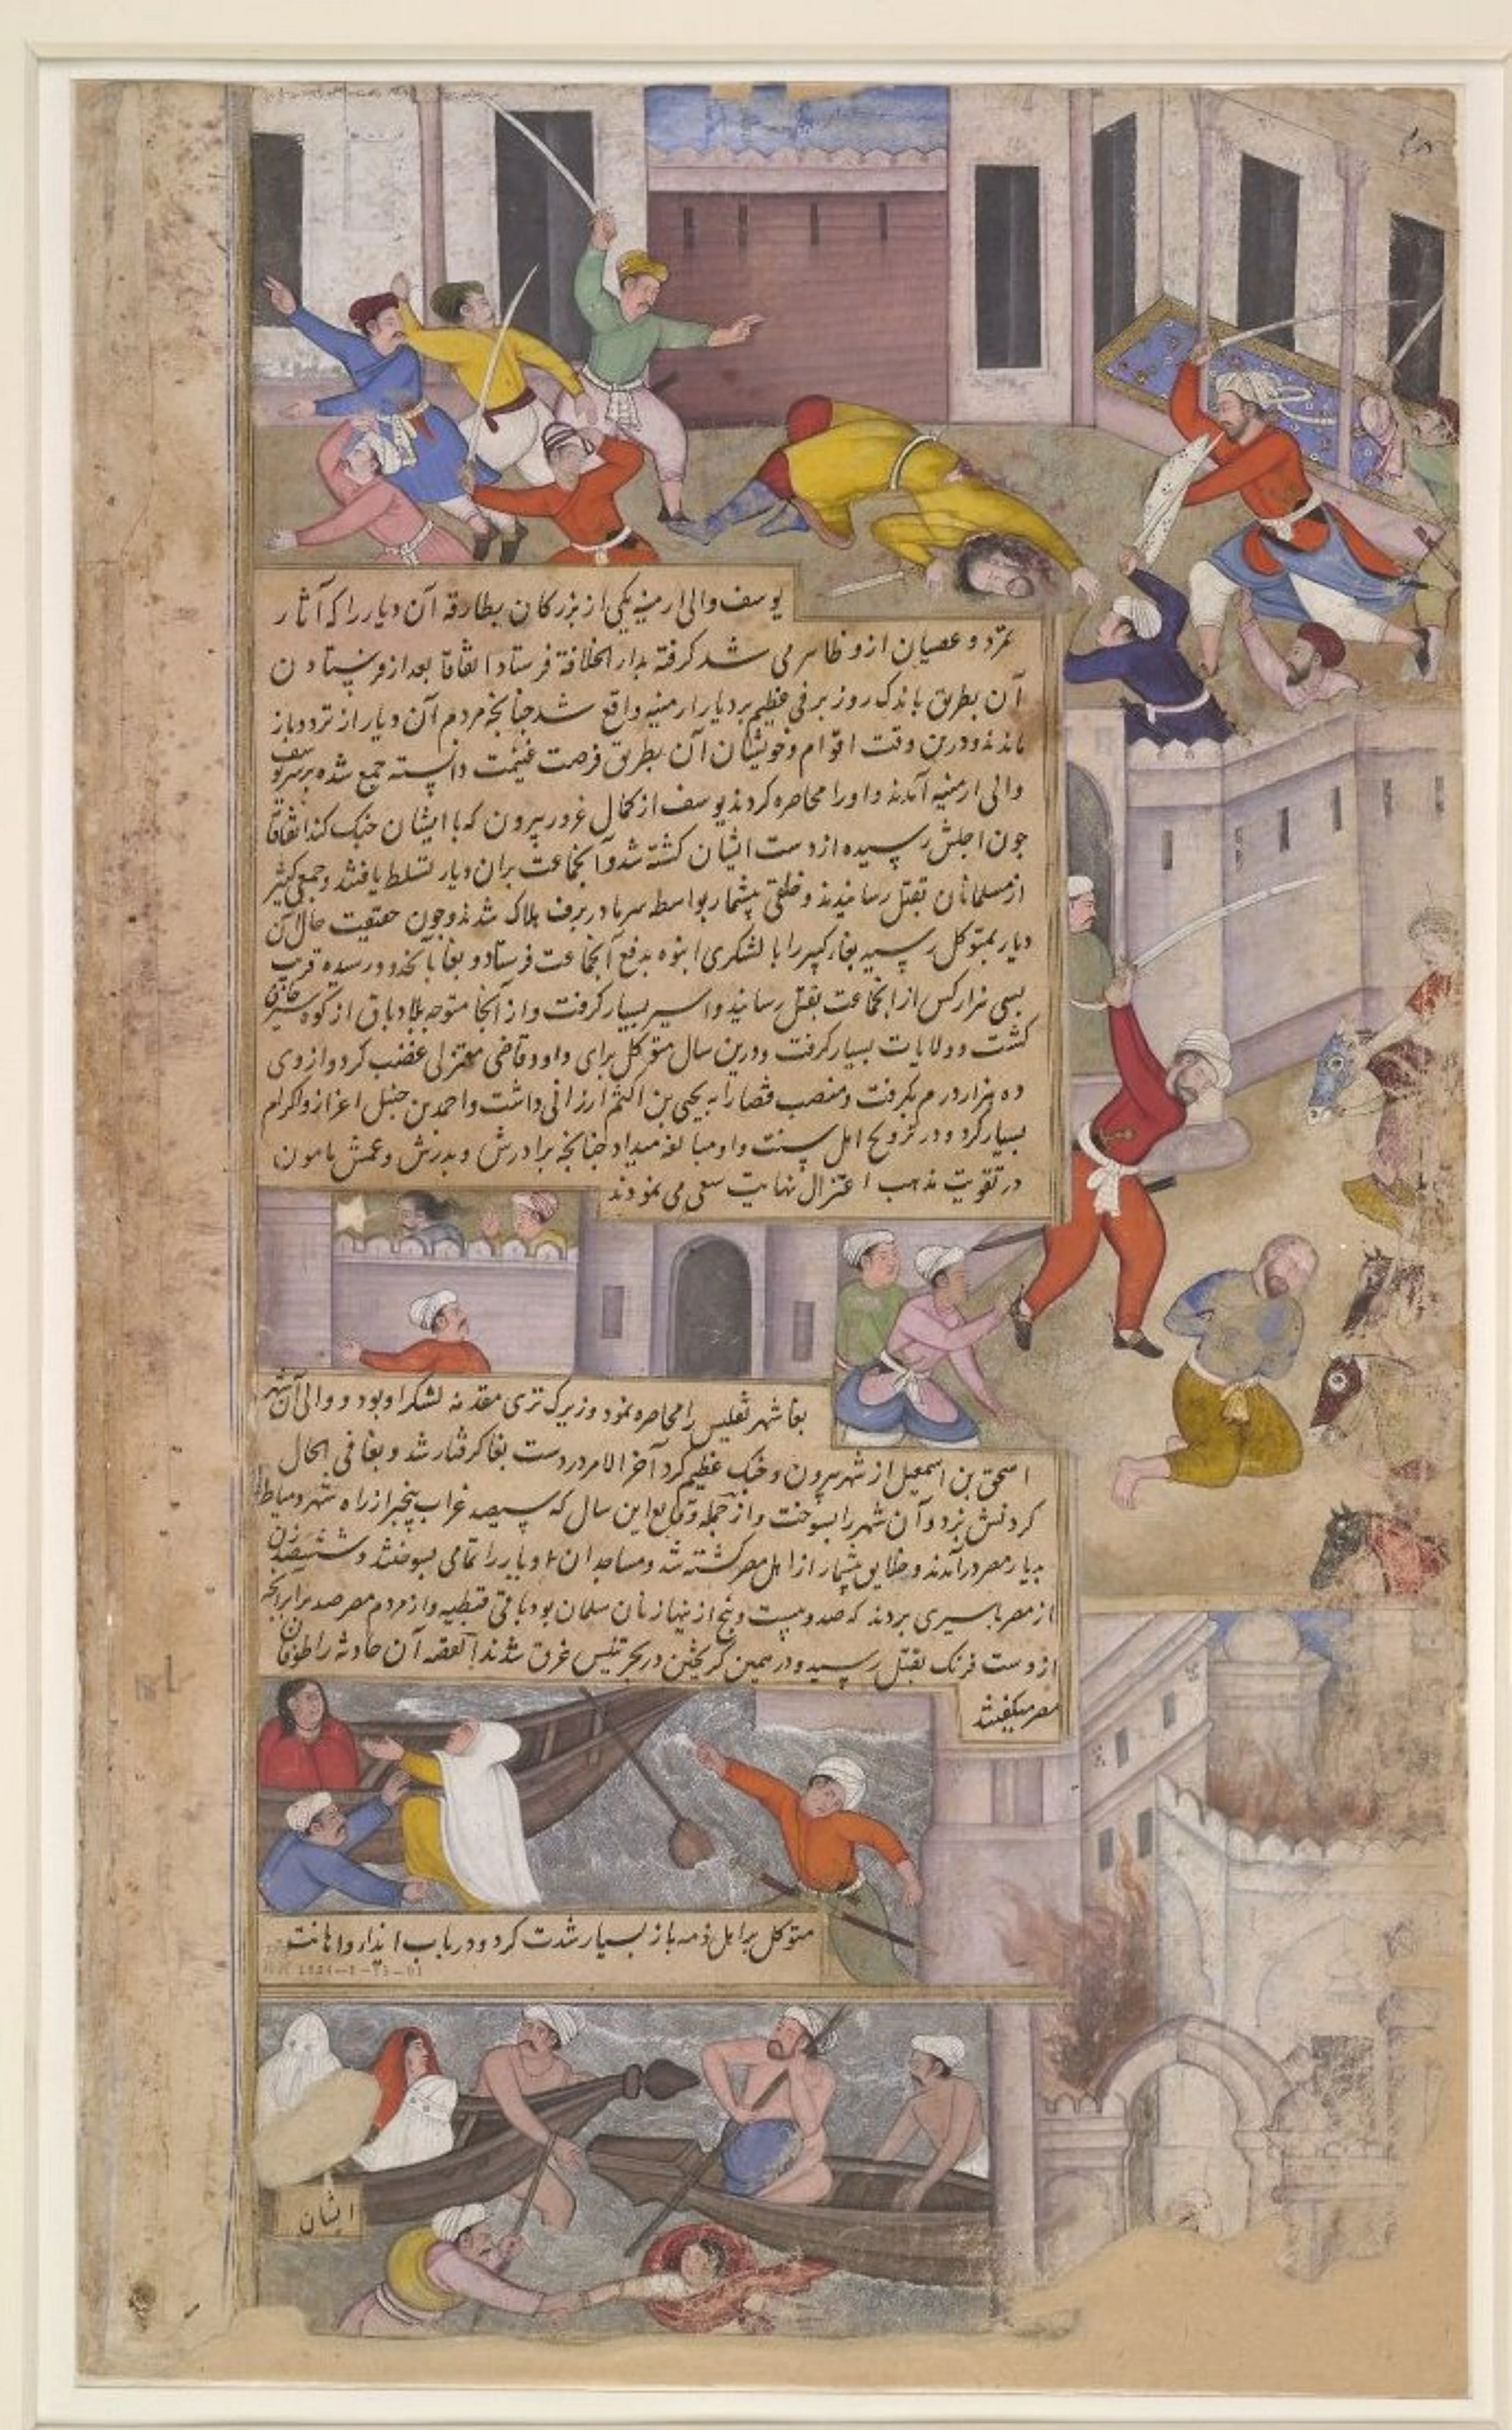 یوسف والی ارمنیه یکی از بزرکان بطارقه آن دیار را که آثار
تمرد و عصیان ازو ظاهر می شد کرفته بدار الخلافة فرستاد اتفاقا بعد از فرستادن
آن بطریق باندک روز برفی عظیم بر دیار ارمنیه واقع شد جنانجه مردم آن دیار از تردد باز
ماندند ودرین وقت اقوام وخویشان آن بطریق فرصت غنیمت دانسته جمع شده برسر یوسف
والی ارمنیه آمدند و اورا محاصره کردند یوسف از کمال غرور بیرون که با ایشان جنک کند اتفاقا
جون اجلش رسیده از دست ایشان کشته شد و آنجماعت بران دیار تسلط یافتند و جمعی کثیر
از مسلمانان بقتل رسانیدند و خلقی بیشمار بواسطه سرما در برف هلاک شدند وجون حقیقت حال آن
دیار بمتوکل رسید بغاء کبیر را با لشکری انبوه بدفع آنجماعت فرستاد و بغا بآنحدود رسیده قریب
بسی هزار کس از آنجماعت بقتل رسانید و اسیر بسیار کرفت و از آنجا متوجه بلاد باق از کوه
کشت و ولایات بسیار کرفت ودرین سال متوکل برای داود قاضی معتزلی غضب کرد و از وی
ده هزار درم بکرفت ومنصب قضا را به یحیی بن اکثم ارزانی داشت و احمد بن حنبل اعزاز واکرام
بسیار کرد و در ترویح اهل سنت واو مبالغه میداد جنانجه برادرش و بدرش و عمش مامون
در تقویت مذهب اعتزال نهایت سعی می نمودند
بغا شهر تفلیس را محاصره نمود و زیرک ترک مقدمه لشکر او بود و والی آن شهر
اسحق بن اسمعیل از شهر بیرون و جنک عظیم کرد آخر الامر در دست بغا کرفتار شد و بغا فی الحال
کردنش بزد و آن شهر را بسوخت و از جمله وقایع این سال که سیصد غراب از راه شهر دمیاط
بدیار مصر درآمدند و خلایق بیشمار از اهل مصر کشته شد و مساجد ان دیار را تمامی بسوختند و ششصد زن
از مصر باسیری بردند که صد و بیست و پنج از زنان مسلمان بود باقی قبطیه و از مردم مصر صد برابر آنجه
از دست فرنک بقتل رسید ودر همین کریختن در بحر تنیس غرق شدند القصه آن حادثه را طوفان
مصر میکفتند
متوکل بر اهل ذمه باز بسیار شدت کرد و در باب ایذا و اهانت
ایشان